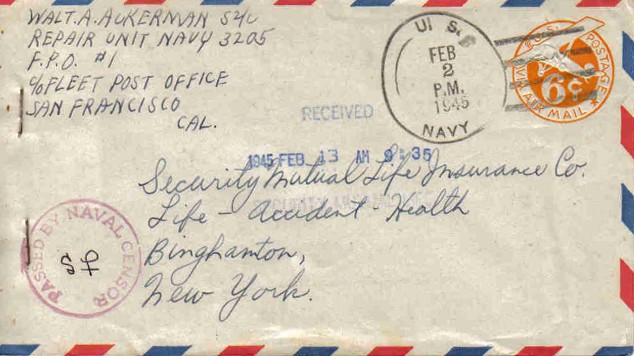 WALT. A. ACKERMAN S2/C
REPAIR UNIT NAVY 3205
F.P.O. #1
c/o FLEET POST OFFICE
SAN FRANCISCO
CAL.
U. S.
FEB
2
P.M.
1945
NAVY
U.S. POSTAGE
6¢
VIA AIR MAIL
RECEIVED
1945 FEB 13 AM 9:35
Security Mutual Life Insurance Co.
Life - Accident - Health
Binghamton,
New York.
PASSED BY NAVAL CENSOR